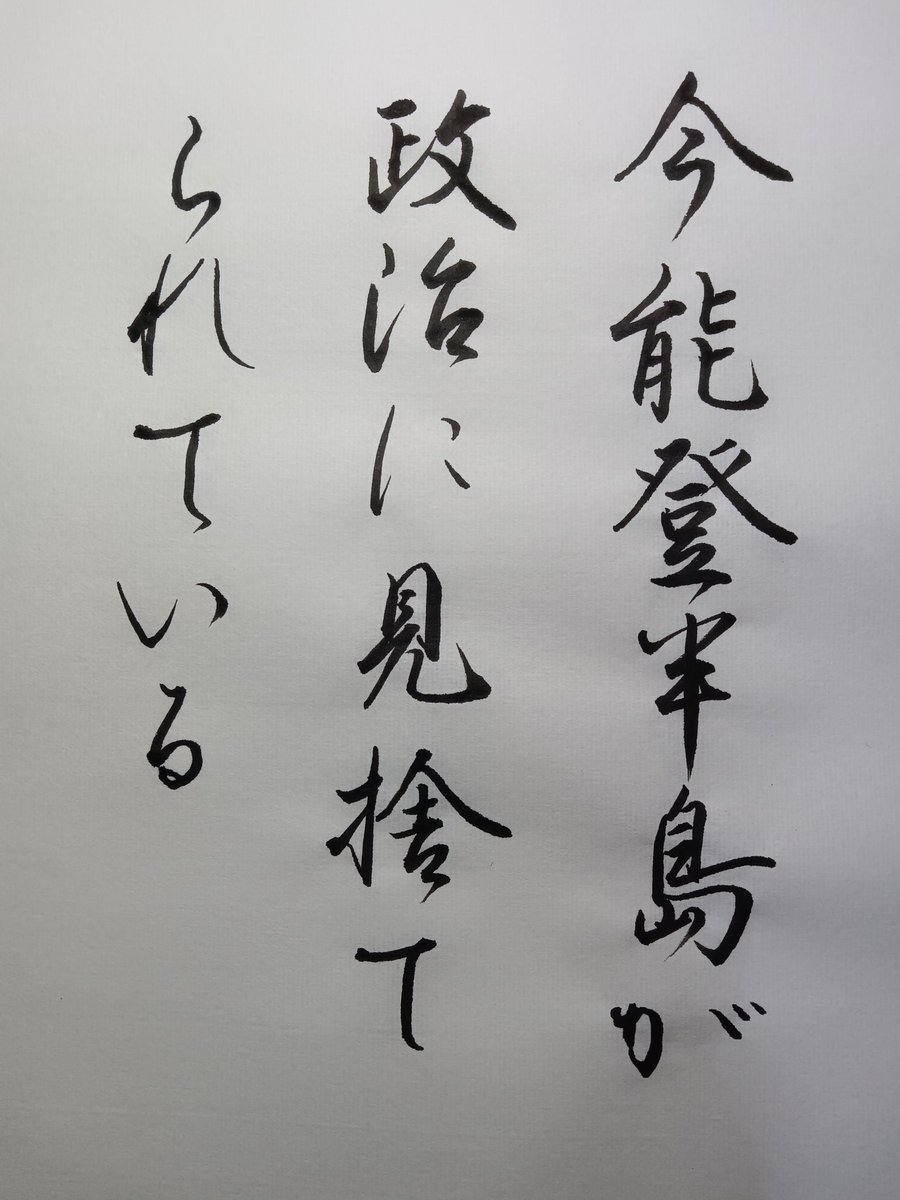 今能登半島が
政治に見捨て
られている